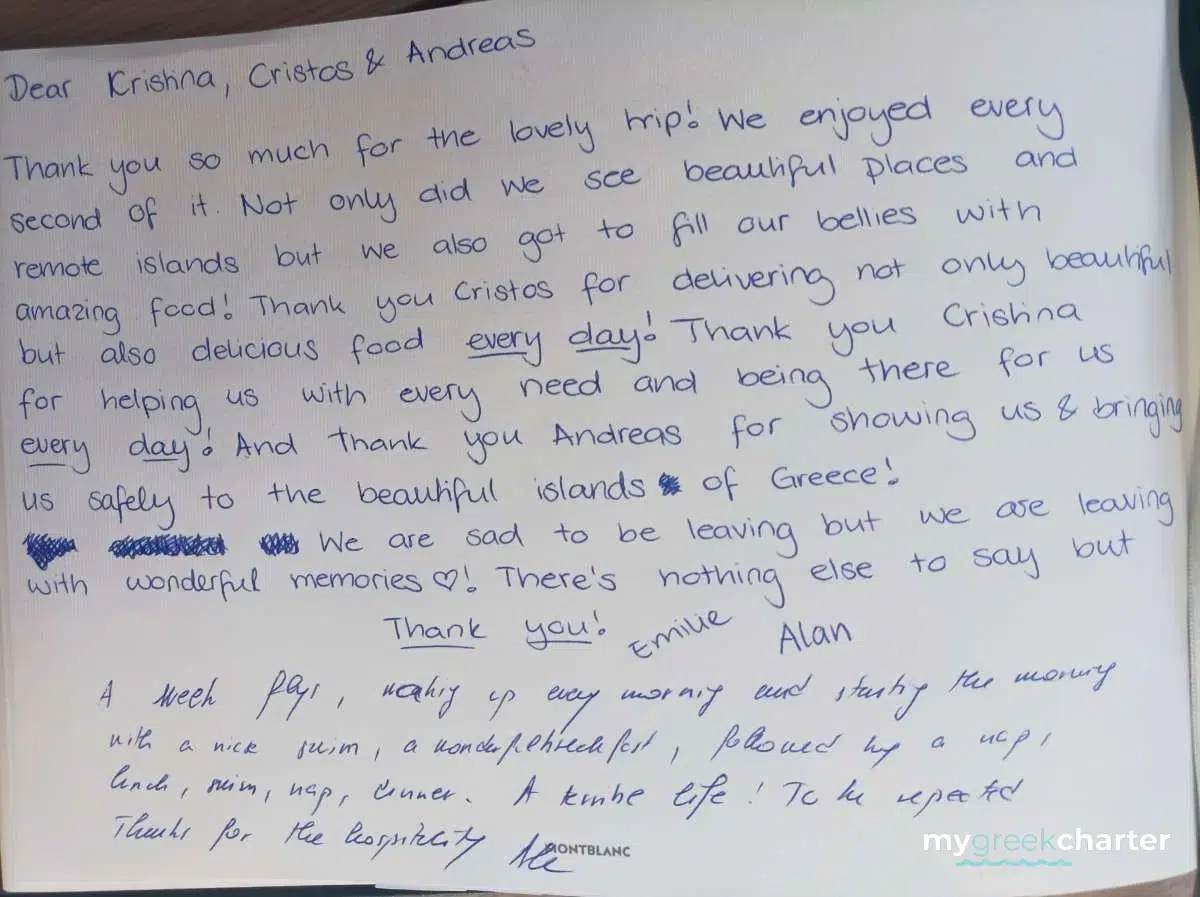 Dear Krishna, Cristos & Andreas
Thank you so much for the lovely trip! We enjoyed every
second of it. Not only did we see beautiful places and
remote islands but we also got to fill our bellies with
amazing food! Thank you Cristos for delivering not only beautiful
but also delicious food every day! Thank you Cristina
for helping us with every need and being there for us
every day! And thank you Andreas for showing us & bringing
us safely to the beautiful islands of Greece!
We are sad to be leaving but we are leaving
with wonderful memories ♡! There's nothing else to say but
Thank you! Emilie Alan
A week, waking up every morning and starting the morning
with a nice swim, a wonderful breakfast, followed by a nap,
lunch, swim, nap, dinner. A life! To be repeated
Thanks for the hospitality
MONTBLANC
mygreekcharter